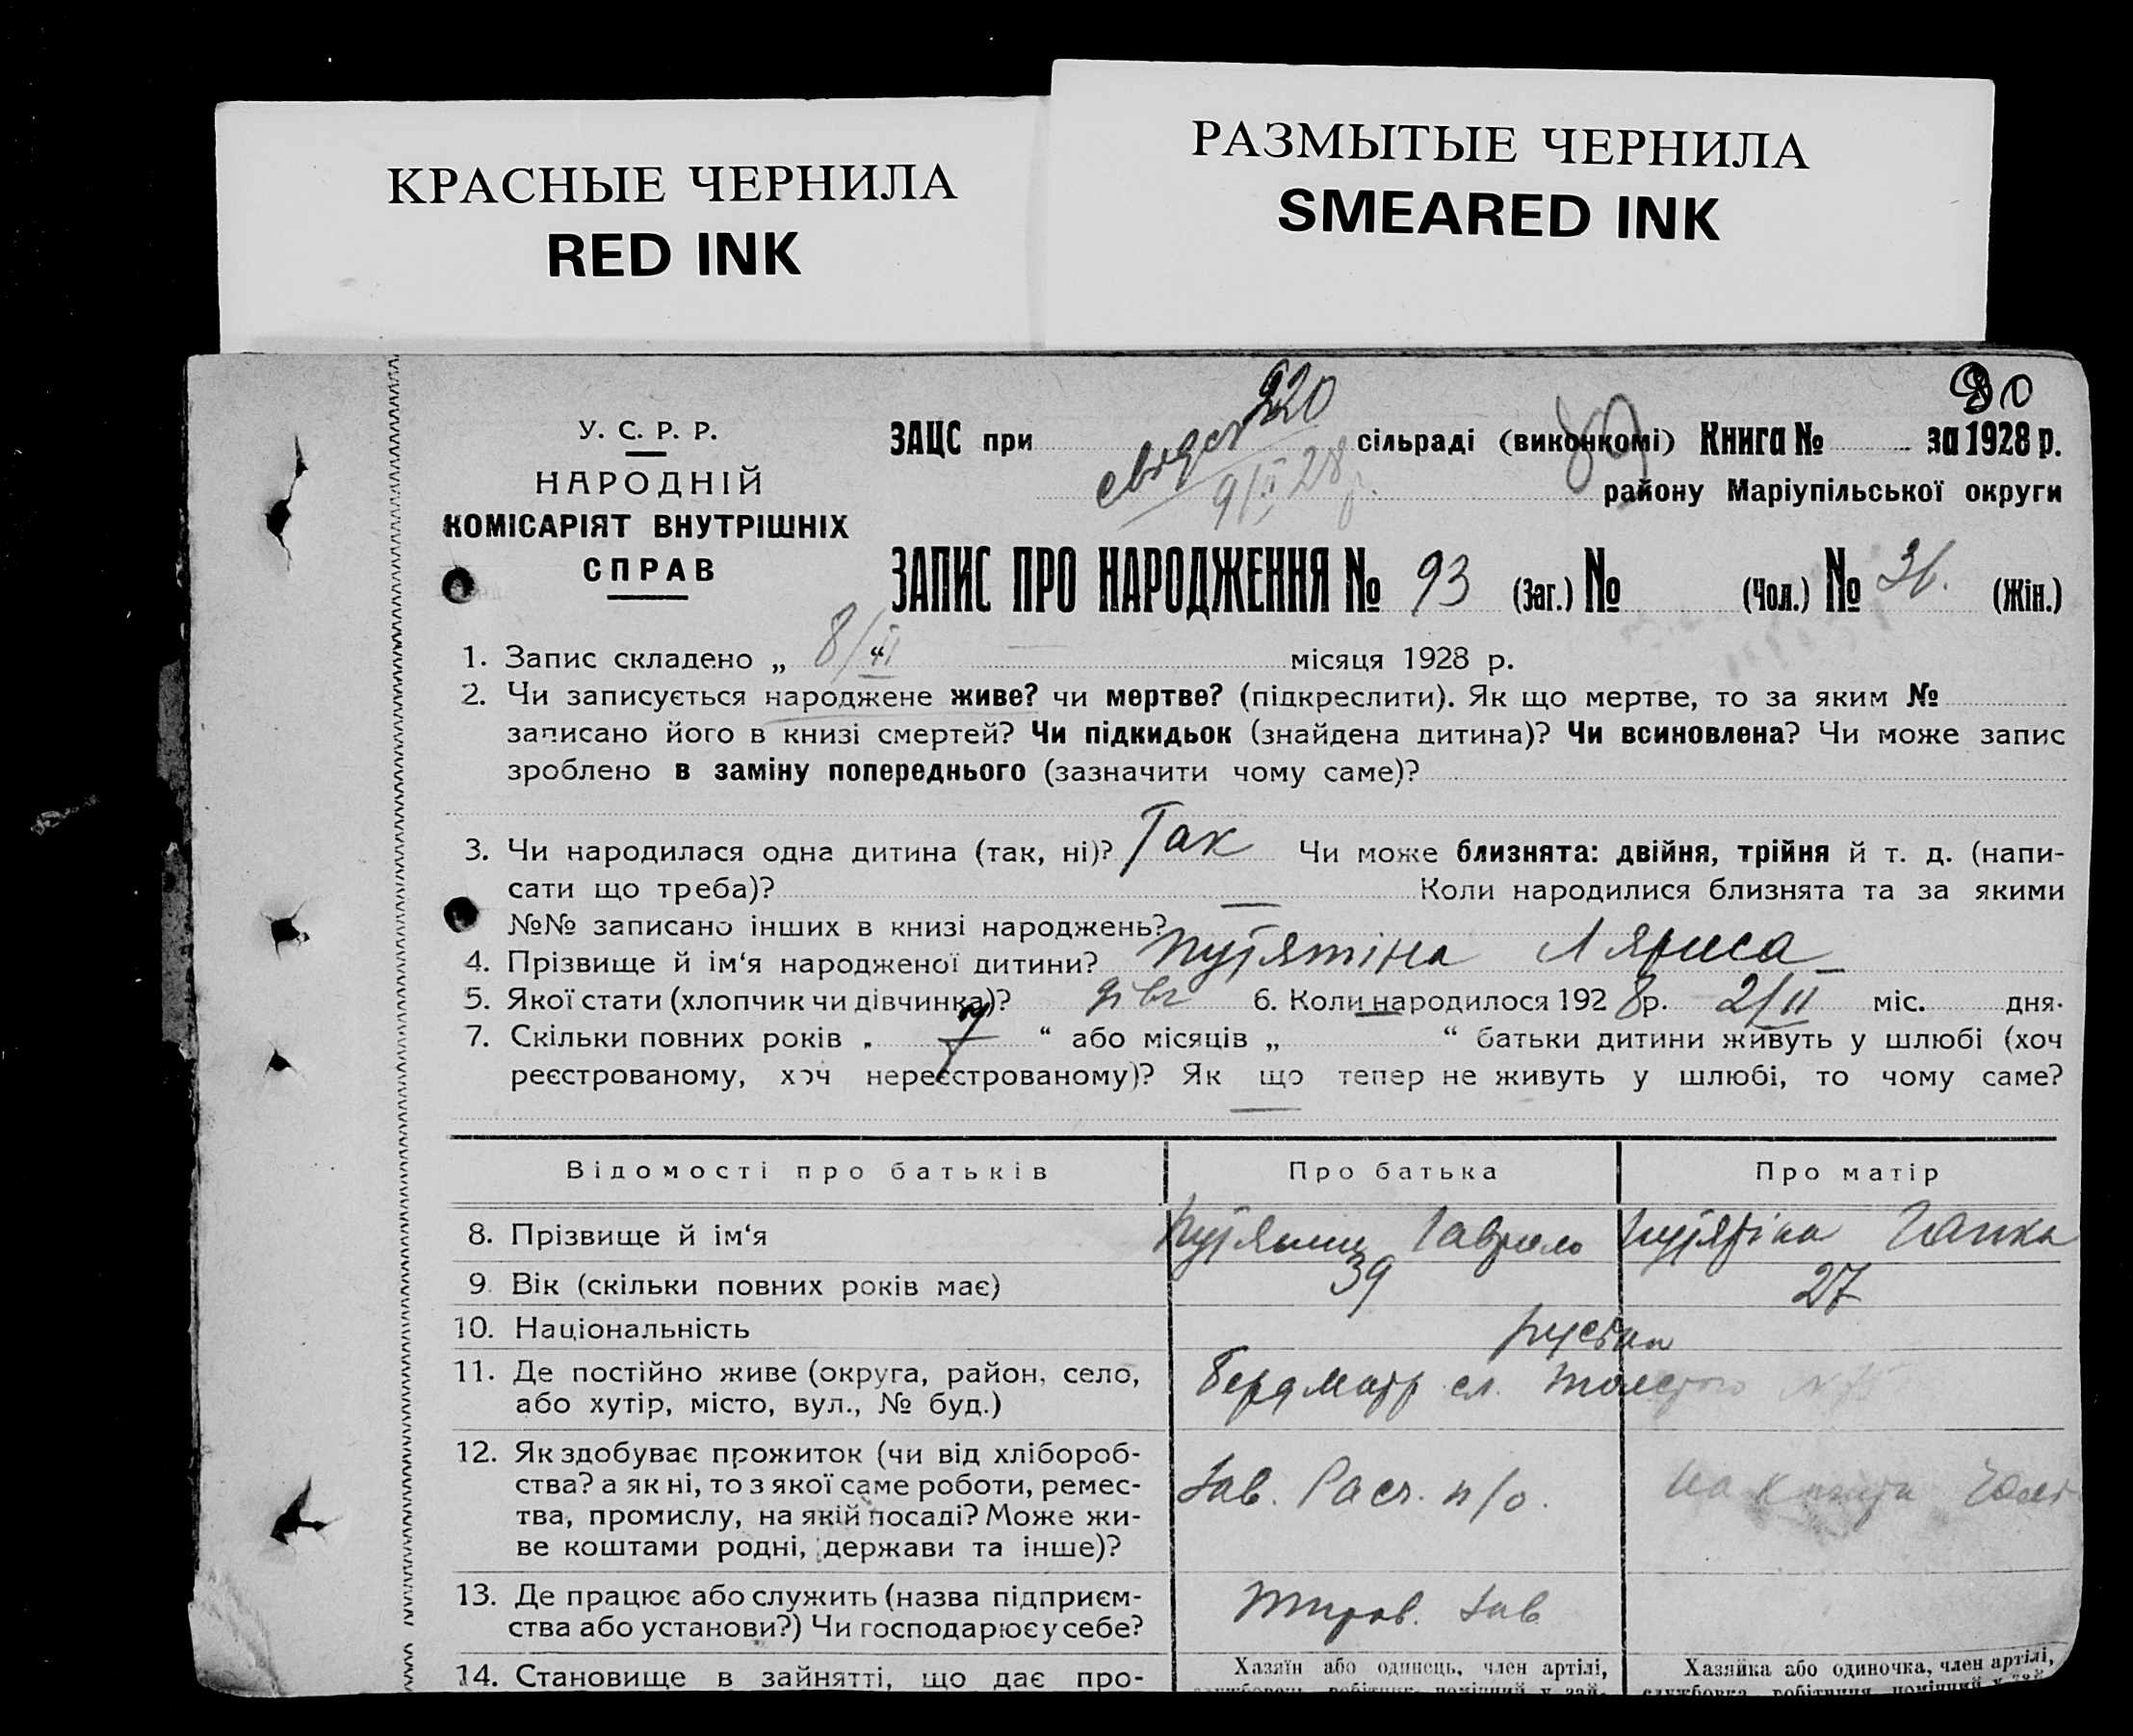 КРАСНЫЕ ЧЕРНИЛА
RED INK
РАЗМЫТЫЕ ЧЕРНИЛА
SMEARED INK
80
220
У. С. Р. Р.
НАРОДНІЙ
КОМІСАРІЯТ ВНУТРІШНІХ
СПРАВ
ЗАЦС при сільраді (виконкомі) Книга № за 1928 р.
9/II 28 р.
району Маріупільської округи
ЗАПИС ПРО НАРОДЖЕННЯ № 93 (Заг.) № (Чол.) № 36. (Жін.)
1. Запис складено „ 8/II “ місяця 1928 р.
2. Чи записується народжене живе? чи мертве? (підкреслити). Як що мертве, то за яким №
записано його в книзі смертей? Чи підкидьок (знайдена дитина)? Чи всиновлена? Чи може запис
зроблено в заміну попереднього (зазначити чому саме)?
3. Чи народилася одна дитина (так, ні)? Так Чи може близнята: двійня, трійня й т. д. (напи-
сати що треба)? Коли народилися близнята та за якими
№№ записано інших в книзі народжень?
4. Прізвище й ім‘я народженої дитини? Путятіна Ляриса
5. Якої стати (хлопчик чи дівчинка)? дівч 6. Коли народилося 1928 р. 2/II міс. дня.
7. Скільки повних років „ 7 “ або місяців „ “ батьки дитини живуть у шлюбі (хоч
реєстрованому, хоч нереєстрованому)? Як що тепер не живуть у шлюбі, то чому саме?
Відомості про батьків Про батька Про матір
8. Прізвище й ім‘я Путятин Гаврило Путятіна Ганна
9. Вік (скільки повних років має) 39 27
10. Національність
11. Де постійно живе (округа, район, село,
або хутір, місто, вул., № буд.)
12. Як здобуває прожиток (чи від хлібороб-
ства? а як ні, то з якої саме роботи, ремес-
тва, промислу, на якій посаді? Може жи-
ве коштами родні, держави та інше)?
Зав. Расч. п/о.
13. Де працює або служить (назва підприєм-
ства або установи?) Чи господарює у себе?
14. Становище в зайнятті, що дає про-
Хазяїн або одинець, член артілі,
Хазяйка або одиночка, член артілі,